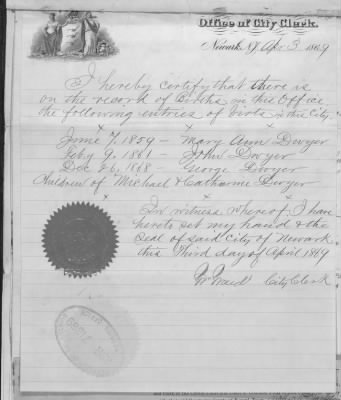 Office of City Clerk.
Newark, N.J. Apr 3 1869
I hereby certify that there is
on the record of Births in this Office
the following entries of birth in this City
June 7. 1859 - Mary Ann Dwyer
Feby 9. 1861 - John Dwyer
Dec 26. 1868 - George Dwyer
Children of Michael & Catharine Dwyer
In witness whereof I have
hereto set my hand & the
Seal of said City of Newark
this Third day of April 1869
City Clerk